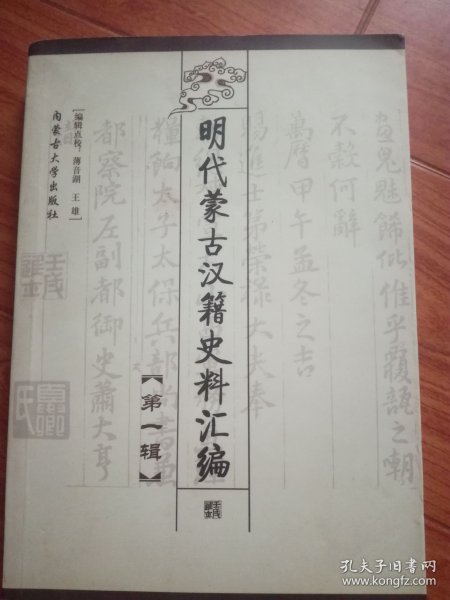 明代蒙古汉籍史料汇编
【第一辑】
[编辑点校:薄音湖 王雄]
内蒙古大学出版社
鬼魅饰仳倠乎覆瓿之嘲
不敢何辞
万历甲午孟冬之吉
赐进士第荣禄大夫奉
太子太保兵部尚书兼
都察院左副都御史萧大亨
孔夫子旧书网
www.kongfz.com